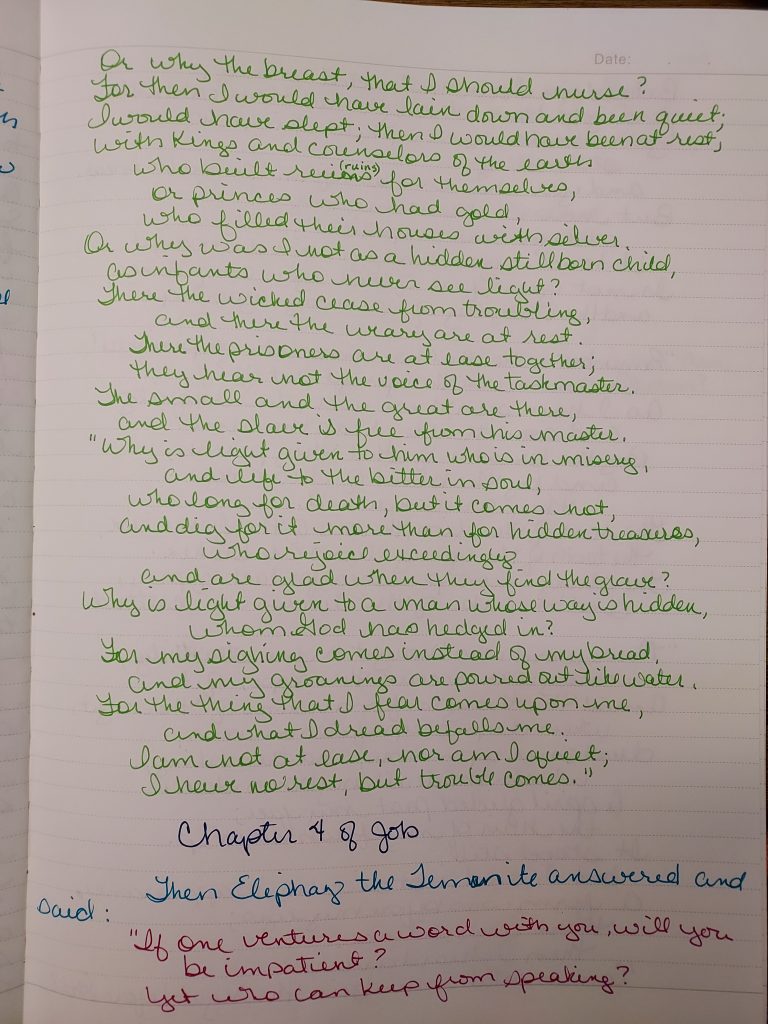 Date:
Or why the breast, that I should nurse?
For then I would have lain down and been quiet;
I would have slept; then I would have been at rest,
with Kings and counselors of the earth
(ruins)
who built ruins for themselves,
or princes who had gold,
who filled their houses with silver.
Or why was I not as a hidden stillborn child,
as infants who never see light?
There the wicked cease from troubling,
and there the weary are at rest.
There the prisoners are at ease together;
they hear not the voice of the taskmaster.
The small and the great are there,
and the slave is free from his master.
"Why is light given to him who is in misery,
and life to the bitter in soul,
who long for death, but it comes not,
and dig for it more than for hidden treasures,
who rejoice exceedingly
and are glad when they find the grave?
Why is light given to a man whose way is hidden,
whom God has hedged in?
For my sighing comes instead of my bread,
and my groanings are poured out like water.
For the thing that I fear comes upon me,
and what I dread befalls me.
I am not at ease, nor am I quiet;
I have no rest, but trouble comes."
Chapter 4 of Job
Then Eliphaz the Temanite answered and
said:
"If one ventures a word with you, will you
be impatient?
Yet who can keep from speaking?